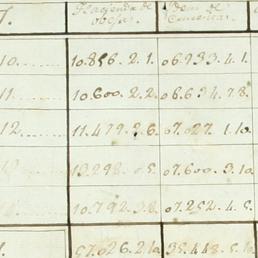 Hacienda de Idem de
obejas. Carneros.
10....... 10.856.2.1. 06.933.4.1.
11....... 10.600.2.2. 06.634.7.8.
12....... 11.479.2.6. 07.027.1.10.
07.600.3.10.
10.792.3.8. 07.252.4.5.
57.026.2.10. 35.448.5.10.